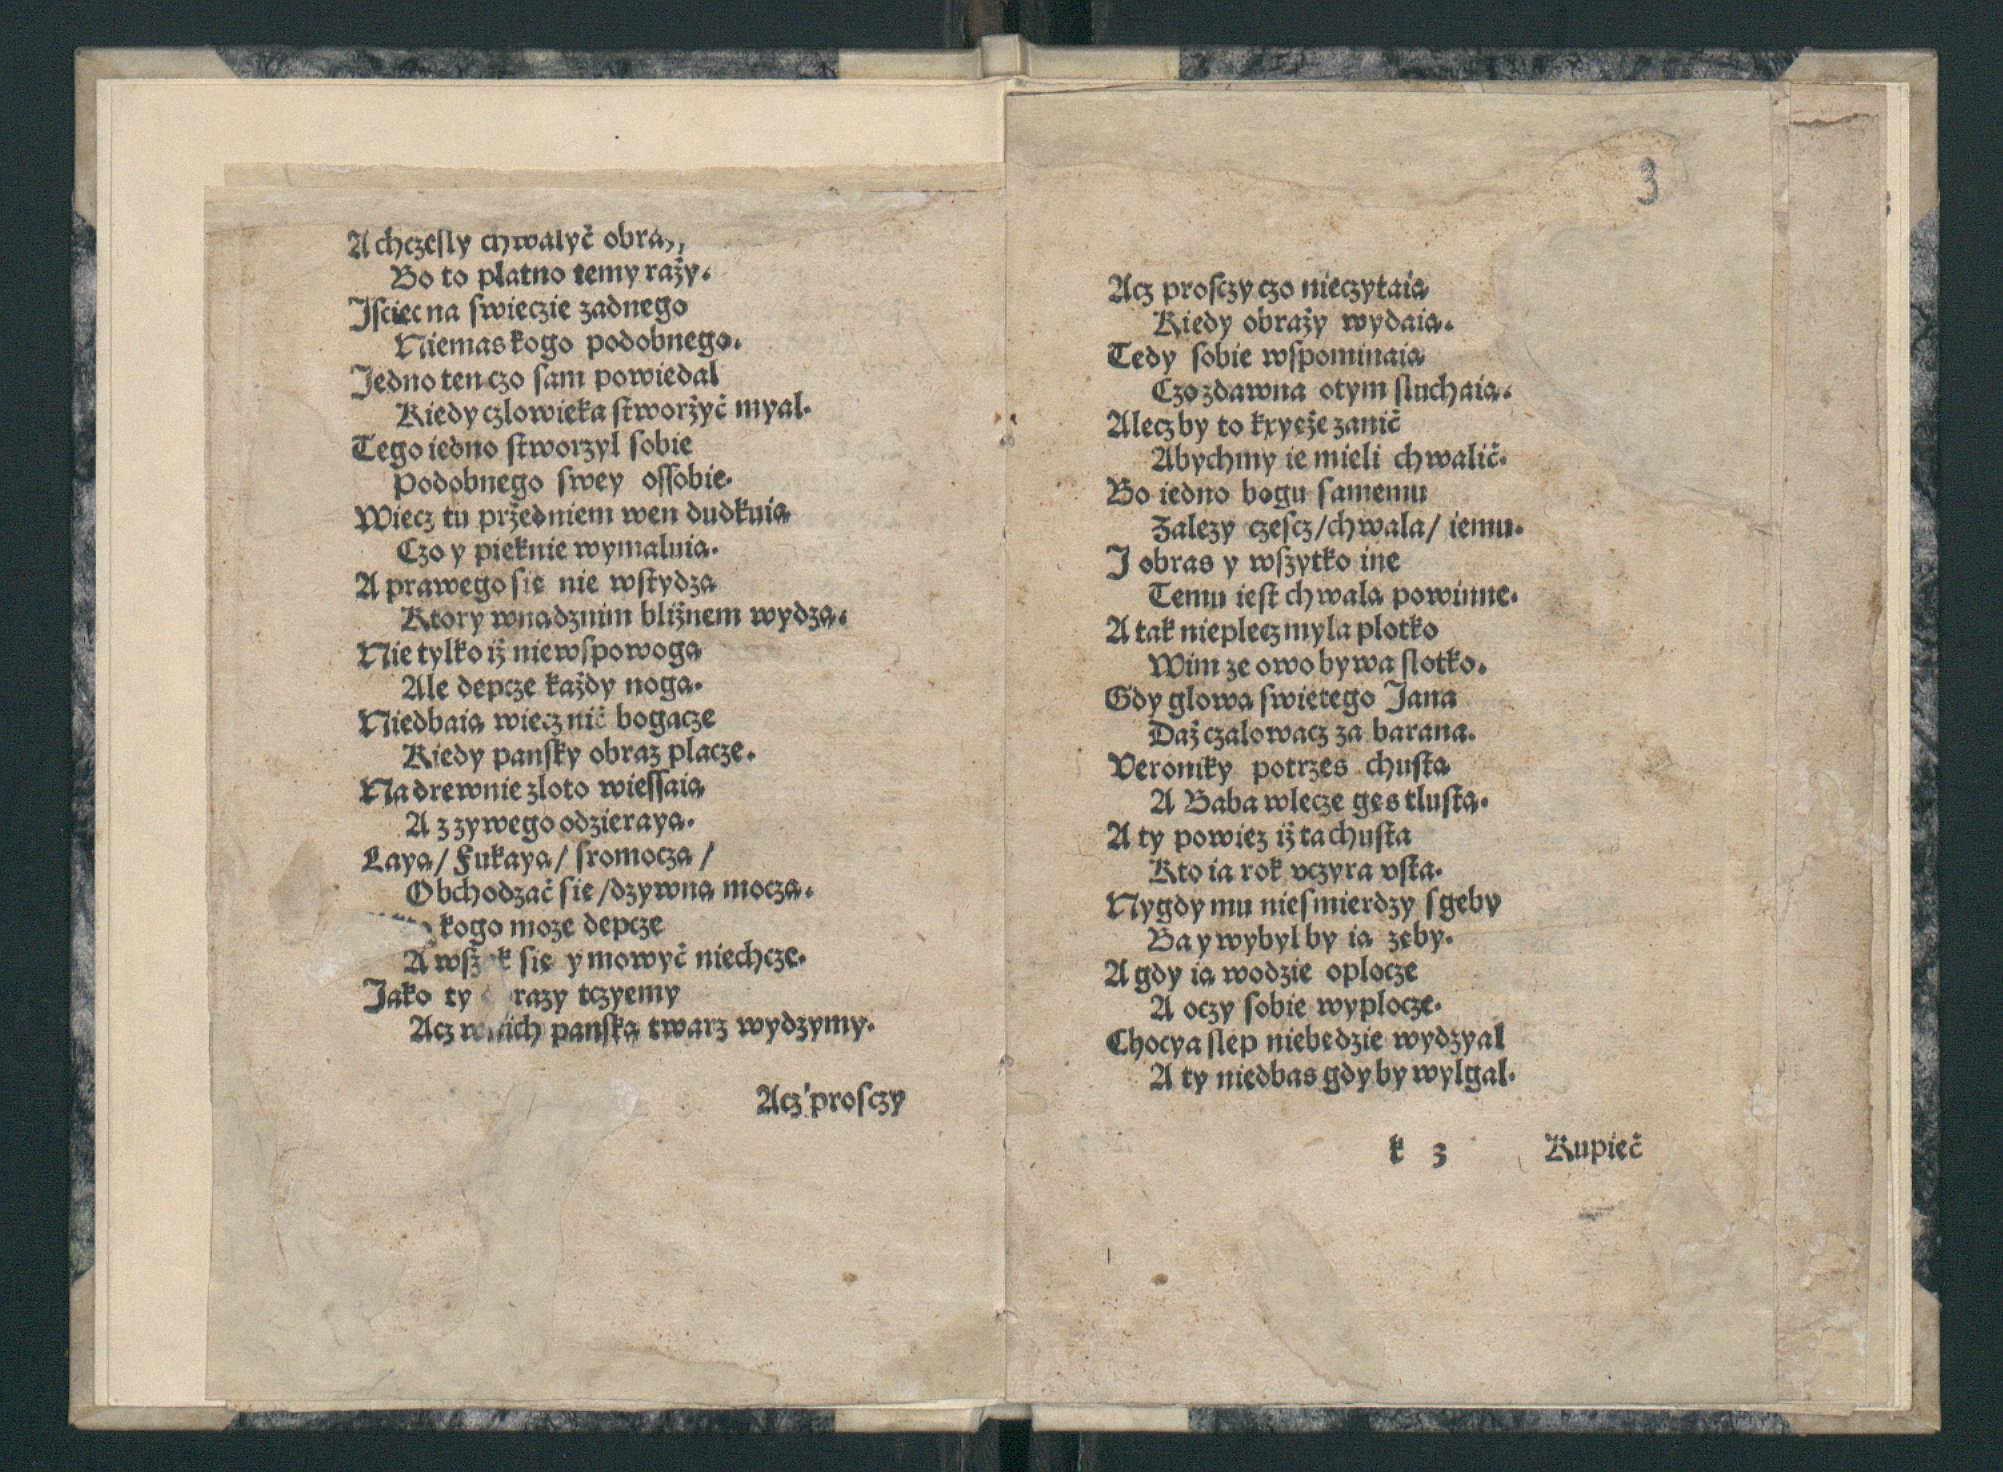 A chczesly chwalyč
Bo to platno temy raży.
Jsciec na swieczie żadnego
Niemas kogo podobnego.
Jedno ten czo sam powiedal
Kiedy czlowieka stworżyč myal.
Tego iedno stworzyl sobie
Podobnego swey ossobie.
Wiecz tu prżedniem wen dudkuią
Czo y pieknie wymaluią.
A prawego się nie wstydzą
Ktory wnądznim bliżnem wydzą.
Nie tylko iż niewspowogą
Ale depcze każdy nogą.
Niedbaią wiecz nič bogacze
Kiedy pansky obraz placze.
Na drewnie zloto wiessaią
A z zywego odzieraya.
Laya/ Fukaya/ sromoczą /
Obchodzač się /dzywną moczą.
kogo moze depcze
A się y mowyč niechcze.
Jako ty tczyemy
Acz panską twarz wydzymy.
Acz prosczy
3
Acz prosczy czo nieczytaią
Kiedy obrazy wydaią.
Tedy sobie wspominaią
Czo zdawna otym sluchaią.
Alecz by to kxyęże zanič
Abychmy ie mieli chwalič.
Bo iedno bogu samemu
Zalezy czescz/chwala/ iemu.
J obras y wszytko ine
Temu iest chwalą powinne.
A tak nieplecz myla plotko
Wim ze owo bywa slotko.
Gdy glową swietego Jana
Daż czalowacz za barana.
Veroniky potrzes chustą
A Baba wlecze gęs tlustą.
A ty powiez iż ta chusta
Kto ia rok vczyra vsta.
Nygdy mu niesmierdzy s geby
Ba y wybyl by ia zęby.
A gdy ią wodzie oplocze
A oczy sobie wyplocze.
Chocya slep niebędzie wydzyal
A ty niedbas gdy by wylgal.
k 3 Kupieč